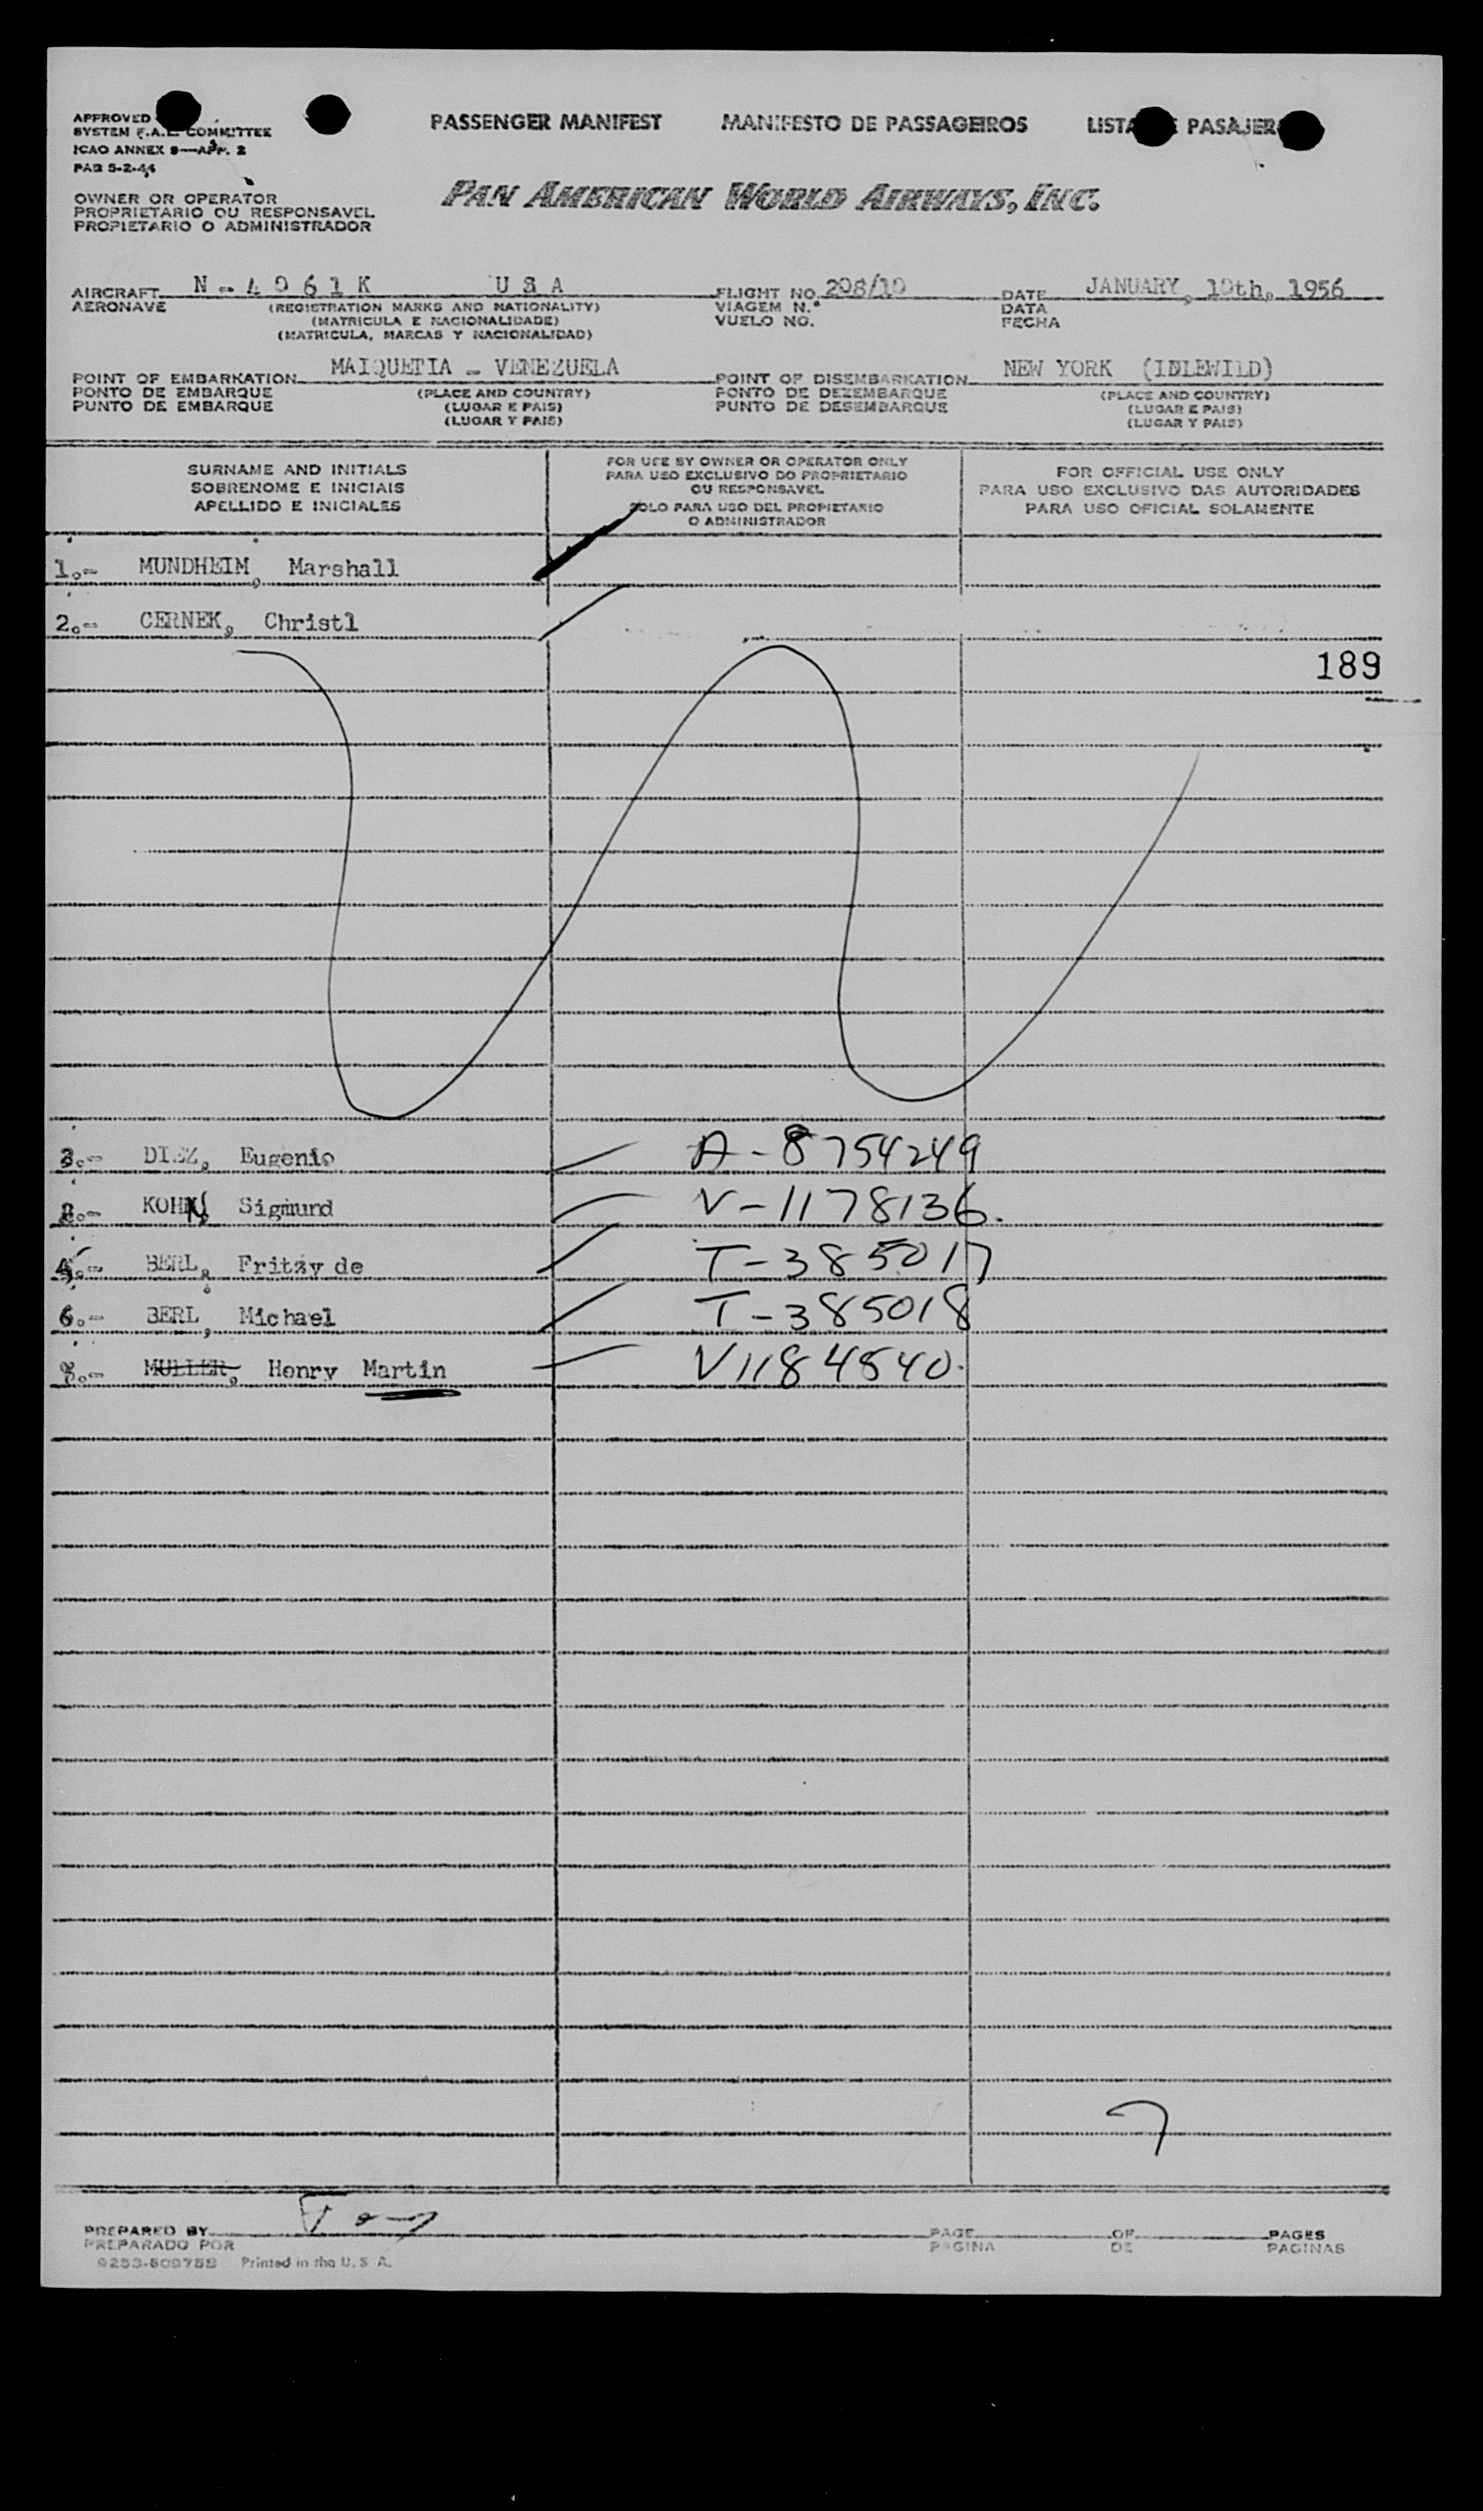 PASSENGER MANIFEST MANIFESTO DE PASSAGEIROS LISTA PASAJER
APPROVED
SYSTEM F.A.L. COMMITTEE
ICAO ANNEX 9—APP. 2
PAB 5-2-44
OWNER OR OPERATOR
PROPRIETARIO OU RESPONSAVEL
PROPIETARIO O ADMINISTRADOR
PAN AMERICAN WORLD AIRWAYS, INC.
AIRCRAFT N-4061K USA FLIGHT NO. 208/10 DATE JANUARY, 10th, 1956
AERONAVE (REGISTRATION MARKS AND NATIONALITY) VIAGEM N.° DATA
(MATRICULA E NACIONALIDADE) VUELO NO. FECHA
(MATRICULA, MARCAS Y NACIONALIDAD)
POINT OF EMBARKATION MAIQUETIA - VENEZUELA POINT OF DISEMBARKATION NEW YORK (IDLEWILD)
PONTO DE EMBARQUE (PLACE AND COUNTRY) PONTO DE DEZEMBARQUE (PLACE AND COUNTRY)
PUNTO DE EMBARQUE (LUGAR E PAIS) PUNTO DE DESEMBARQUE (LUGAR E PAIS)
(LUGAR Y PAIS) (LUGAR Y PAIS)
SURNAME AND INITIALS
SOBRENOME E INICIAIS
APELLIDO E INICIALES
FOR USE BY OWNER OR OPERATOR ONLY
PARA USO EXCLUSIVO DO PROPRIETARIO
OU RESPONSAVEL
SOLO PARA USO DEL PROPIETARIO
O ADMINISTRADOR
FOR OFFICIAL USE ONLY
PARA USO EXCLUSIVO DAS AUTORIDADES
PARA USO OFICIAL SOLAMENTE
1.- MUNDHEIM, Marshall
2.- CERNEK, Christl
189
3.- DIEZ, Eugenio A-8754249
KOHN, Sigmund V-1178136.
BERL, Fritzy de T-385017
6.- BERL, Michael T-385018
MULLER, Henry Martin V1184540.
7
PREPARED BY PAGE OF PAGES
PREPARADO POR PAGINA DE PAGINAS
Printed in the U.S.A.